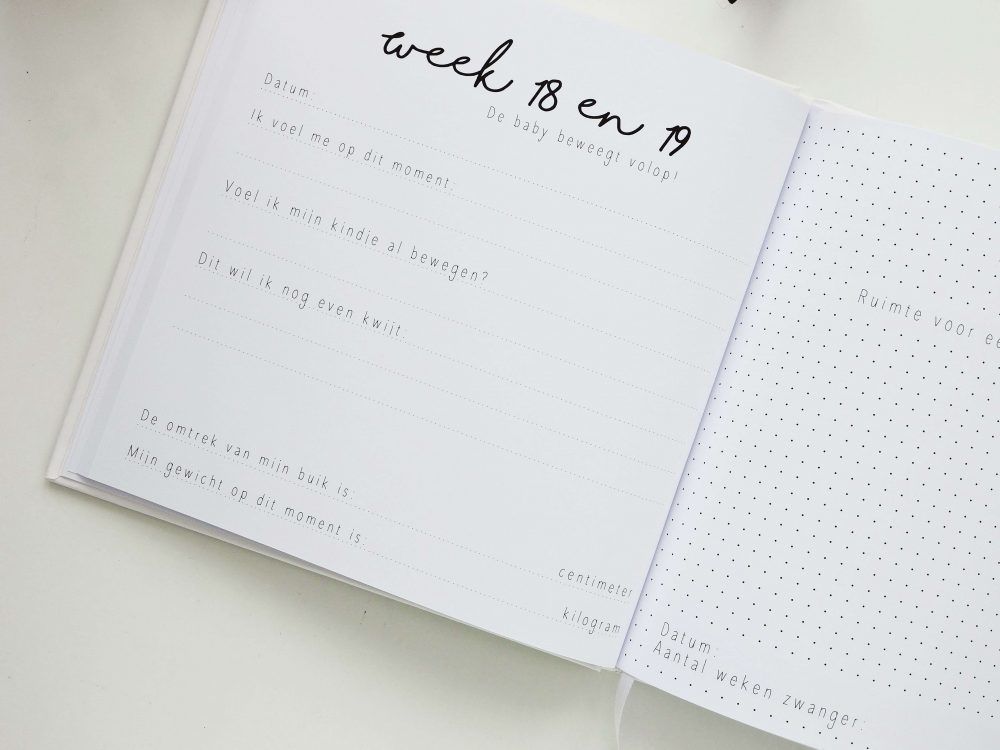 week 18 en 19
De baby beweegt volop!
Datum:
Ik voel me op dit moment:
Voel ik mijn kindje al bewegen?
Dit wil ik nog even kwijt:
De omtrek van mijn buik is:
centimeter
Mijn gewicht op dit moment is:
kilogram
Ruimte voor
Datum:
Aantal weken zwanger: